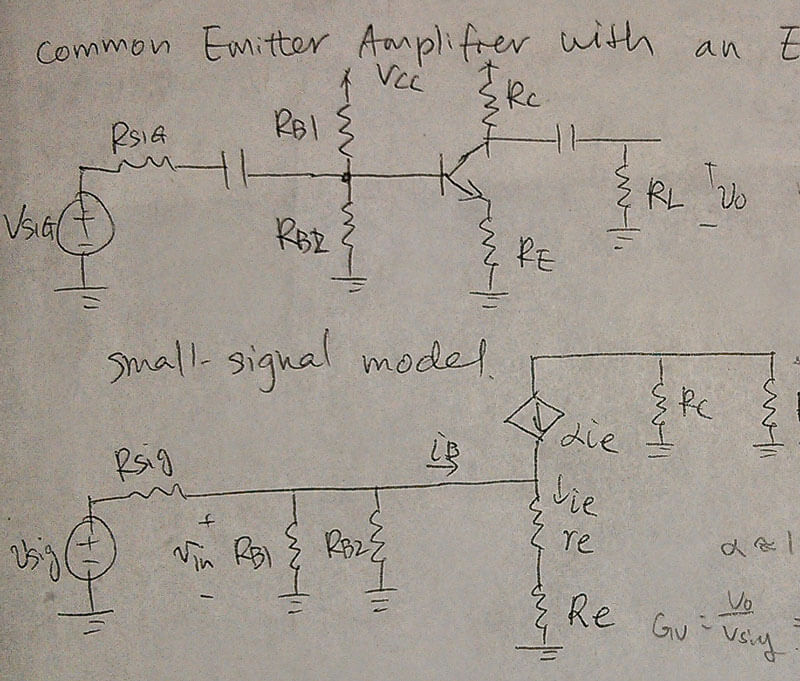 Common Emitter Amplifier with an E
VCC
RC
RB1
RSIG
+
VSIG
-
RB2
RE
RL
+
vo
-
small-signal model.
Rsig
iB
αie
RC
+
vsig
-
+
vin
-
RB1
RB2
ie
re
Re
α≈1
Gv = vo/vsig =